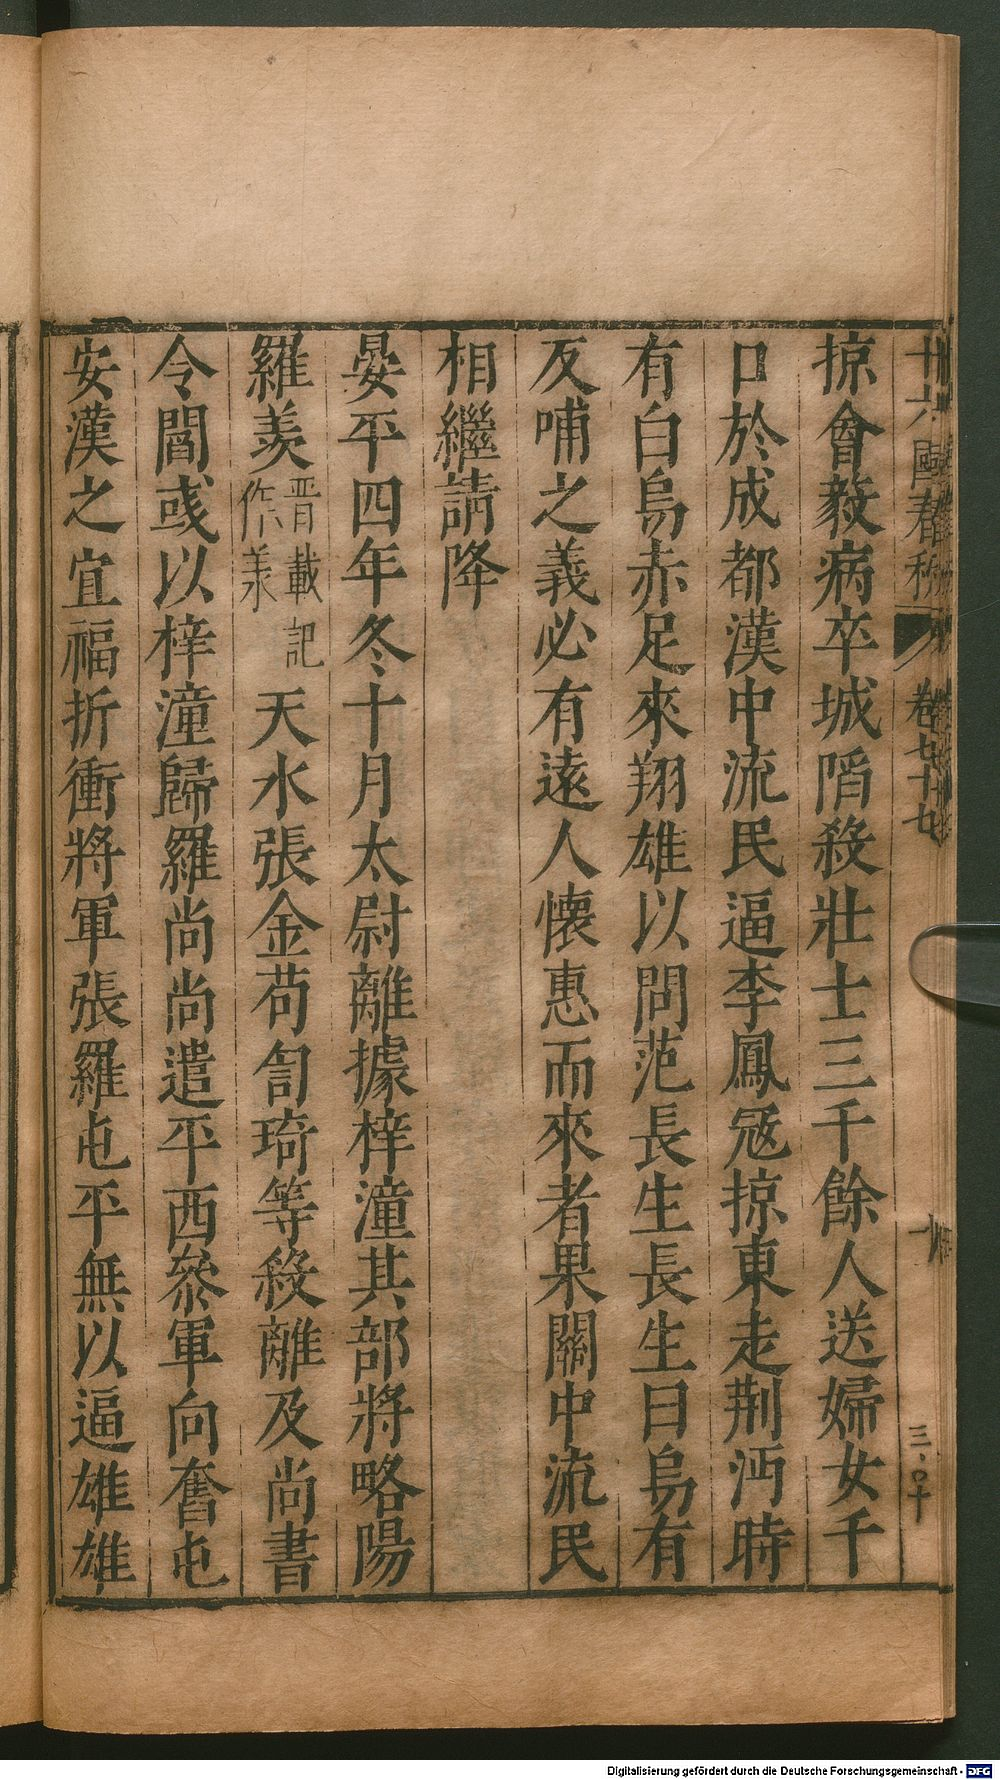 十六國春秋　卷七十七
掠會毅病卒城陷殺壯士三千餘人送婦女千
口於成都漢中流民逼李鳳寇掠東走荆沔時
有白烏赤足來翔雄以問范長生長生曰烏有
反哺之義必有遠人懷惠而來者果關中流民
相繼請降
晏平四年冬十月太尉離據梓潼其部將略陽
羅羨晋載記作羕天水張金苟訇琦等殺離及尚書
令閻彧以梓潼歸羅尚尚遣平西叅軍向奮屯
安漢之宜福折衝將軍張羅屯平無以逼雄雄
Digitalisierung gefördert durch die Deutsche Forschungsgemeinschaft - DFG